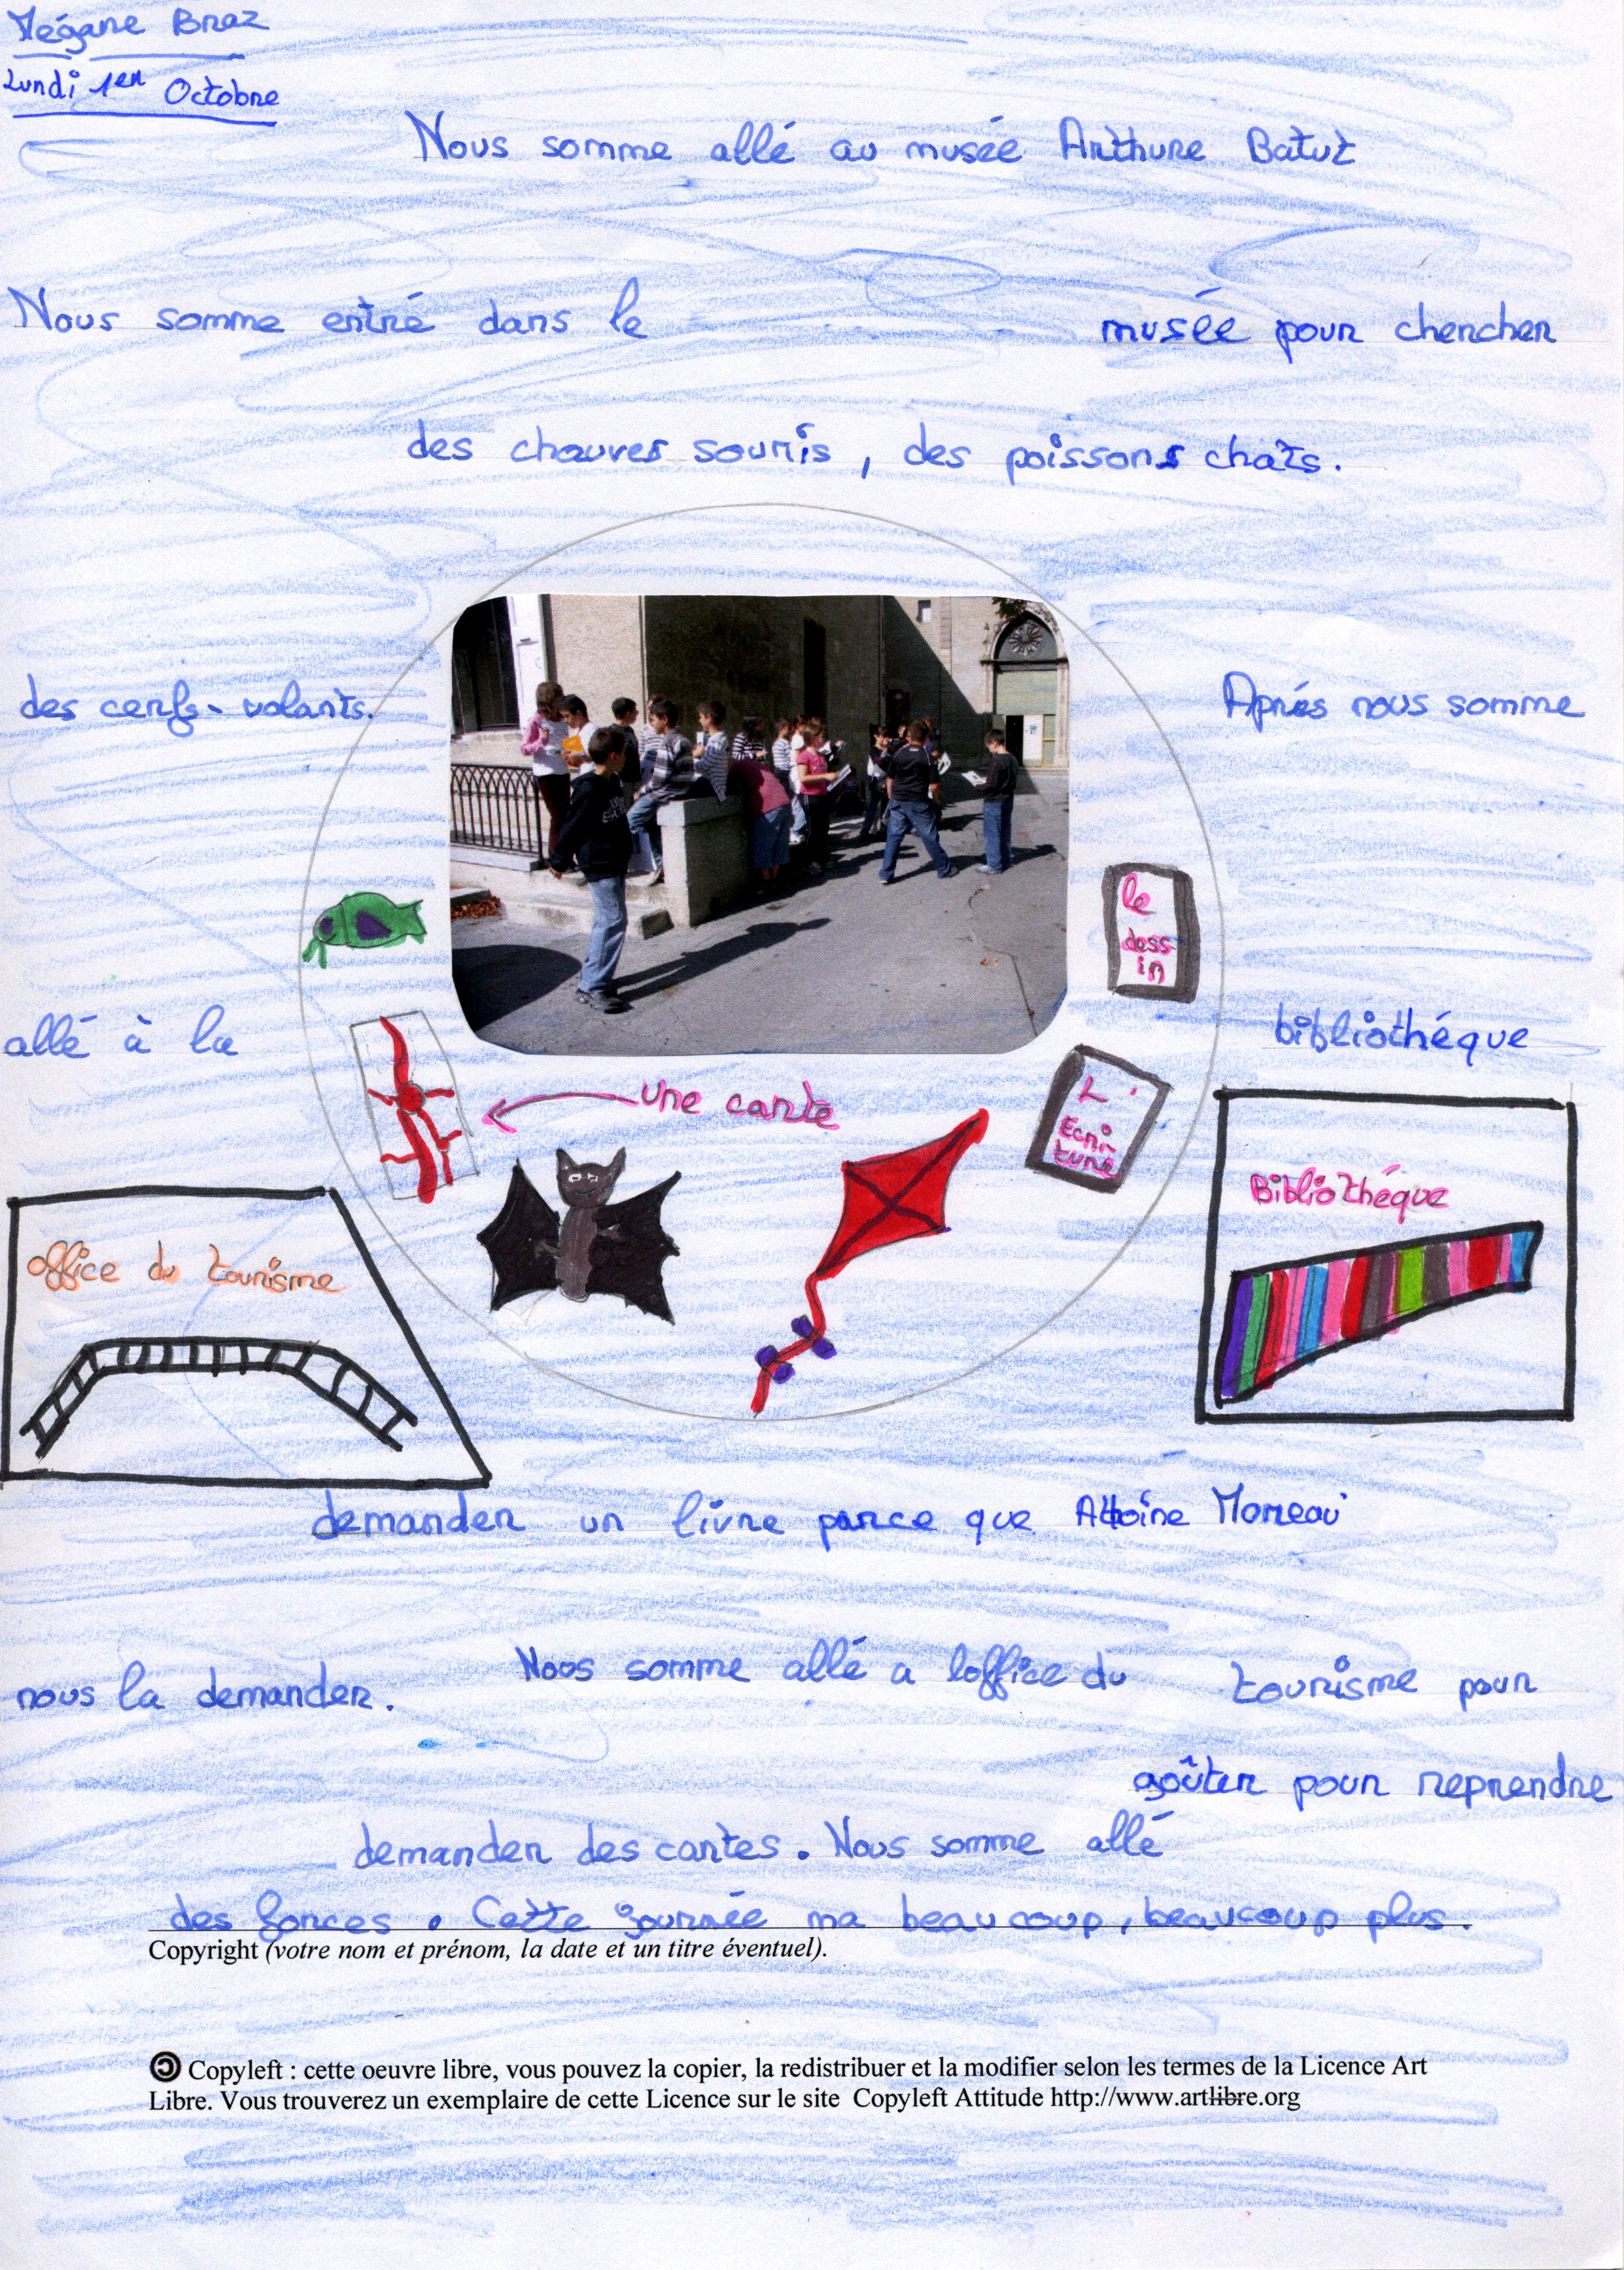 Mégane Braz
Lundi 1er Octobre
Nous somme allé au musée Arthure Batut
Nous somme entré dans le musée pour chercher
des chauves souris, des poissons chats.
des cerfs-volants. Aprés nous somme
le
dess
in
allé à la bibliothéque
une carte
L'
Ecri-
ture
Bibliothéque
office du tourisme
demander un livre parce que Attoine Moreau
nous la demander. Nous somme allé a loffice du tourisme pour
demander des cartes. Nous somme allé goûter pour reprendre
des forces. Cette journée ma beaucoup, beaucoup plus.
Copyright (votre nom et prénom, la date et un titre éventuel).
Copyleft : cette oeuvre libre, vous pouvez la copier, la redistribuer et la modifier selon les termes de la Licence Art
Libre. Vous trouverez un exemplaire de cette Licence sur le site Copyleft Attitude http://www.artlibre.org